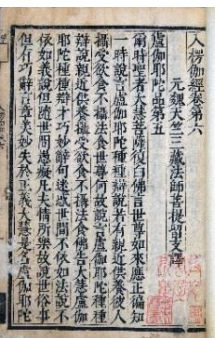 入楞伽經卷第六
元魏天竺三藏法師菩提留支譯
盧伽耶陀品第五
爾時聖者大慧菩薩復白佛言世尊如來應正徧知
一時說言盧伽耶陀種種辯說若有親近供養彼人
攝受欲食不攝法食世尊何故說言盧伽耶陀種種
辯說親近供養攝受欲食不攝法食佛告大慧盧伽
耶陀種種辯才巧妙辭句迷惑世間不依如法說不
依如義說但隨世間愚癡凡夫情所樂故說世俗事
但有巧辭言章美妙失於正義大慧是名盧伽耶陀